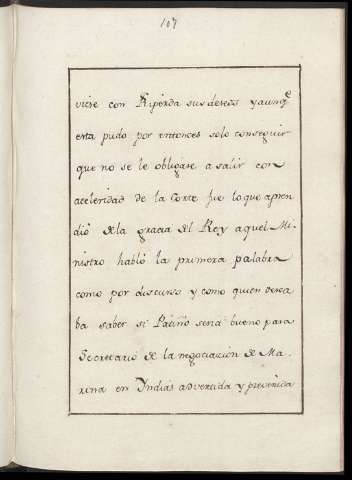 107
viese con Riperda sus deseos y aunqe
esta pudo por entonces solo conseguir
que no se le obligase a salir con
aceleridad de la Corte fue lo que apren
dió de la gracia del Rey aquel Mi-
nistro habló la primera palabra
como por discurso y como quien desea
ba saber si Patiño seria bueno para
Secretario de la negociación de Ma-
rina en Yndias advertida y prevenida